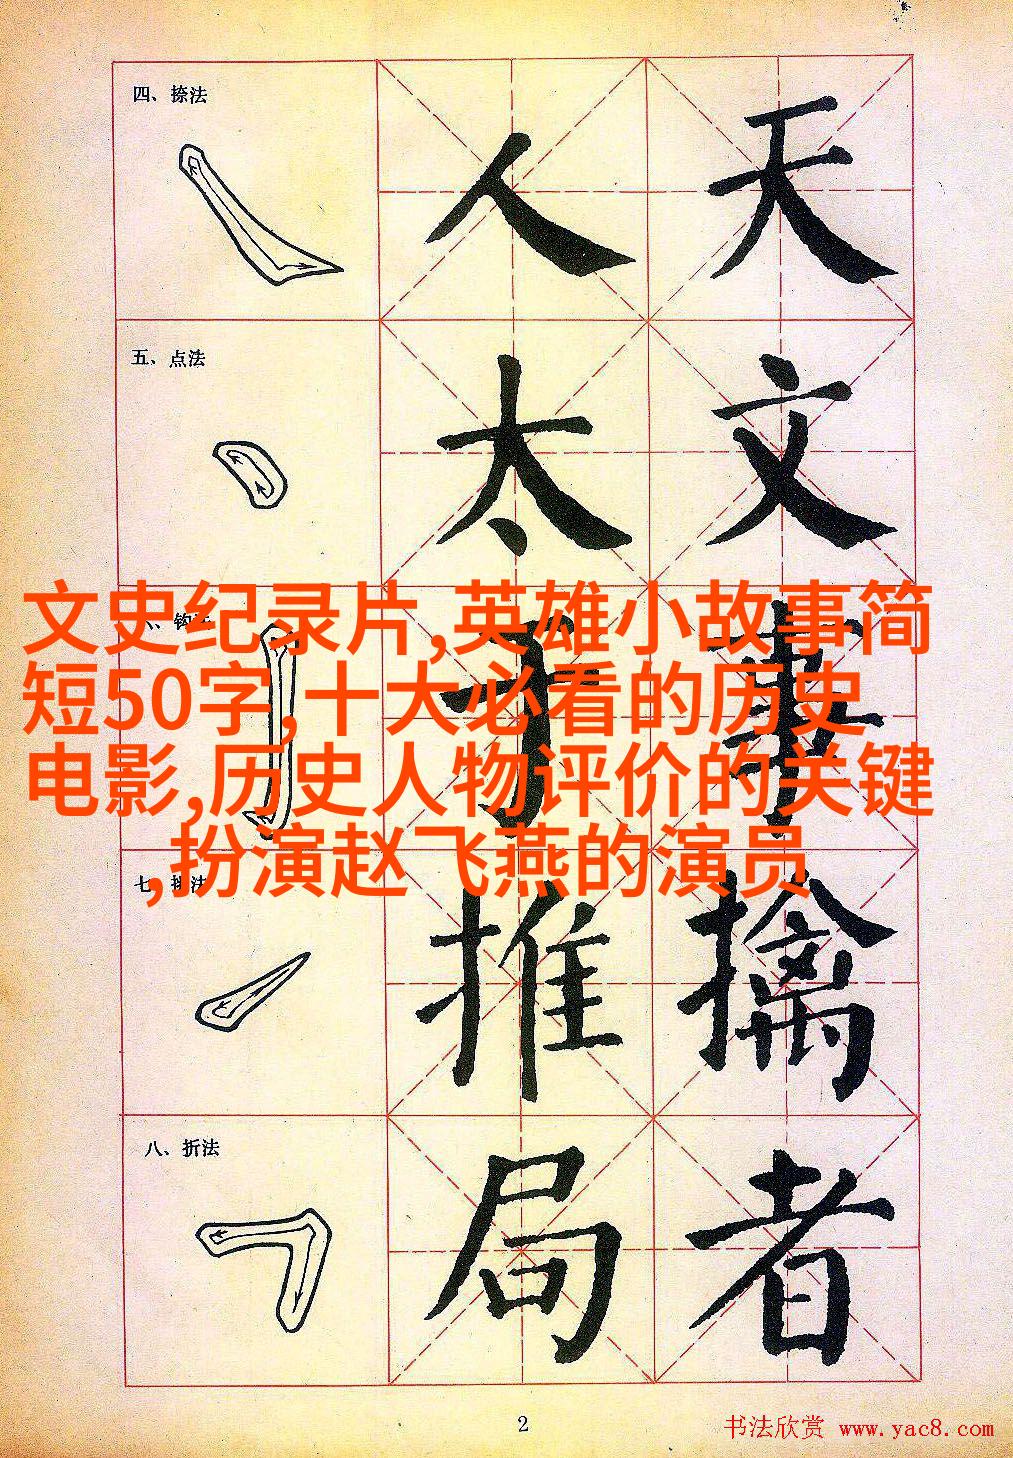 四、捺法
人 天
五、点法
太 文
文史纪录片,英雄小故事简
短50字,十大必看的历史
电影,历史人物评价的关键
,扮演赵飞燕的演员
于 事
推 擒
八、折法
局 者
2
书法欣赏 www.yac8.com